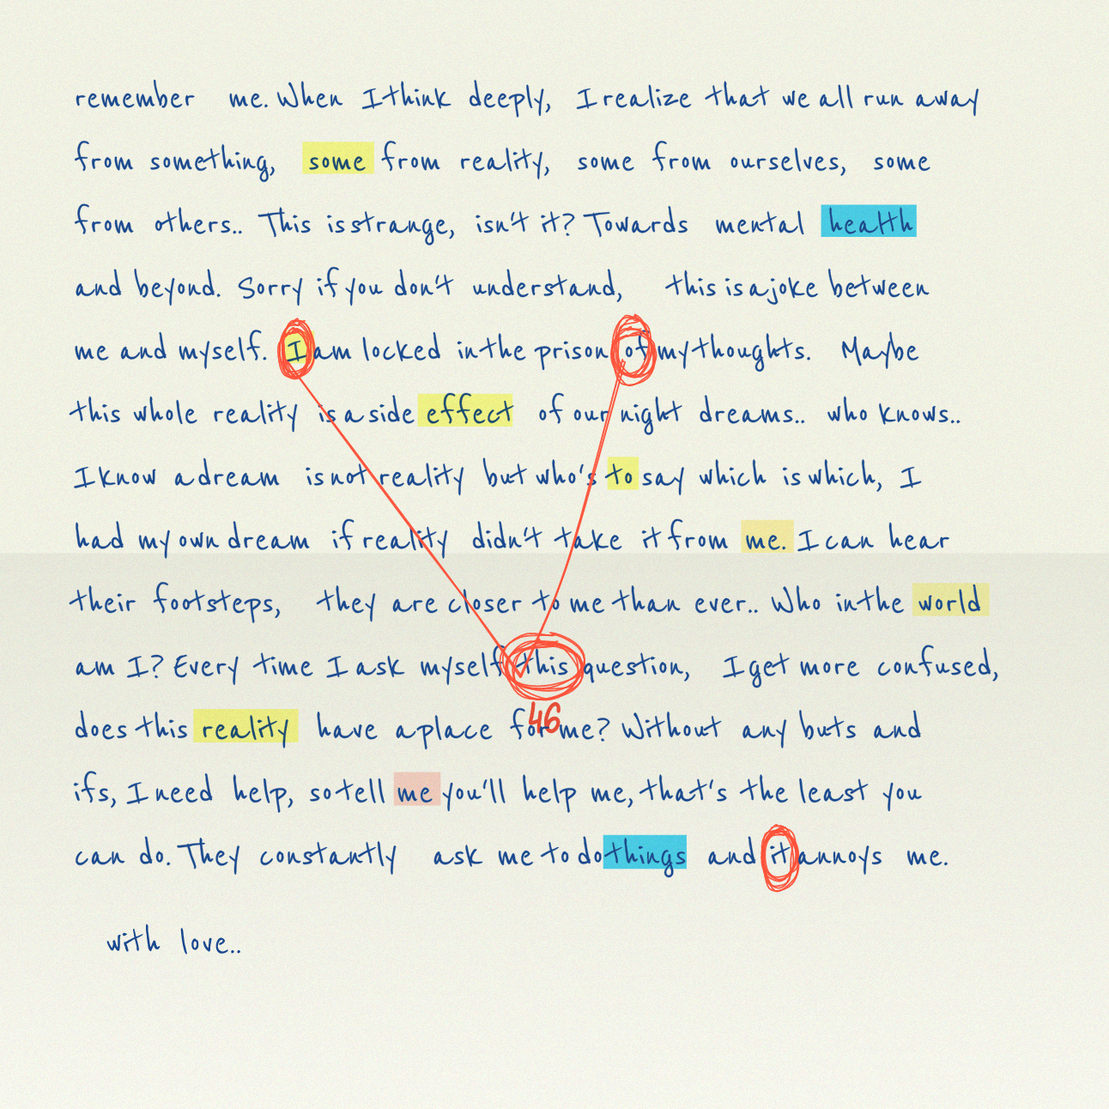 remember me. When I think deeply, I realize that we all run away
from something, some from reality, some from ourselves, some
from others.. This is strange, isn't it? Towards mental health
and beyond. Sorry if you don't understand, this is a joke between
me and myself. I am locked in the prison of my thoughts. Maybe
this whole reality is a side effect of our night dreams.. who knows..
I know a dream is not reality but who's to say which is which, I
had my own dream if reality didn't take it from me. I can hear
their footsteps, they are closer to me than ever.. Who in the world
am I? Every time I ask myself this question, I get more confused,
46
does this reality have a place for me? Without any buts and
ifs, I need help, so tell me you'll help me, that's the least you
can do. They constantly ask me to do things and it annoys me.
with love..